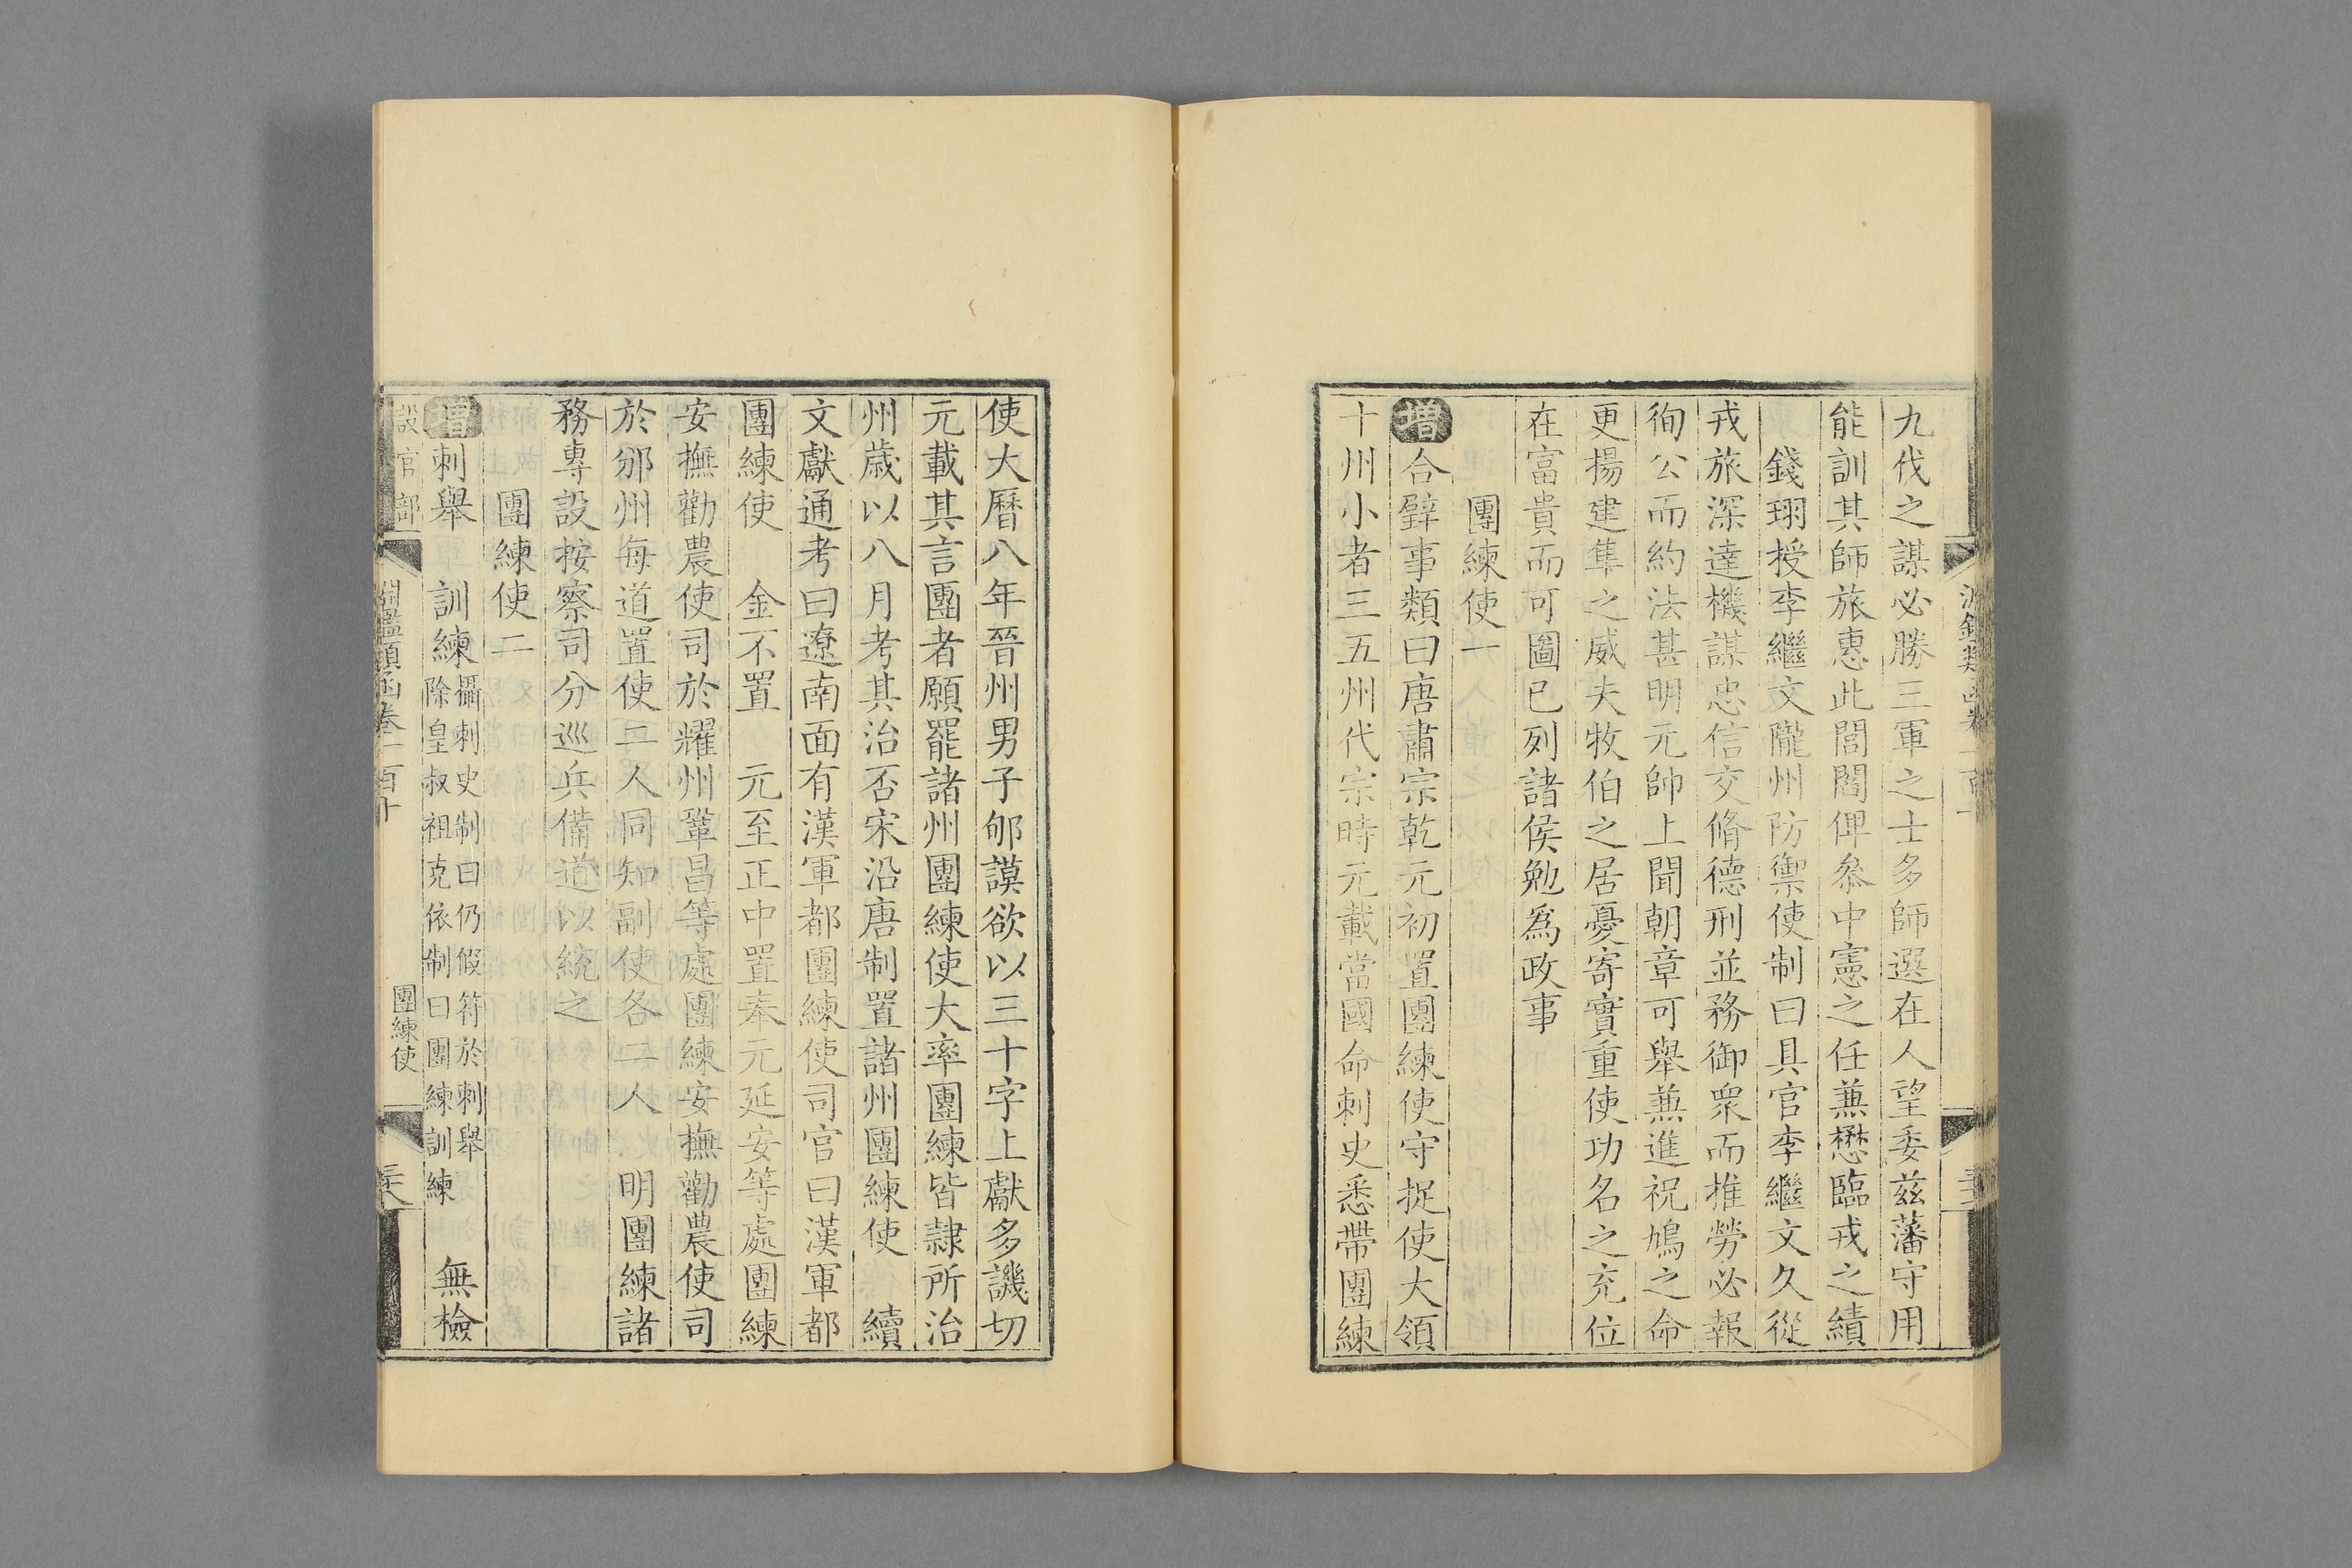 九伐之謀必勝三軍之士多師選在人望委兹藩守用
能訓其師旅惠此閭閻俾叅中憲之任兼懋臨戎之績
錢珝授李繼文隴州防禦使制曰具官李繼文久從
戎旅深達機謀忠信交脩德刑並務御衆而推勞必報
徇公而約法甚明元帥上聞朝章可舉兼進祝鳩之命
更揚建隼之威夫牧伯之居憂寄實重使功名之充位
在富貴而可圖已列諸侯勉爲政事
團練使一
增合璧事類曰唐肅宗乾元初置團練使守捉使大領
十州小者三五州代宗時元載當國命刺史悉帶團練
使大曆八年晉州男子郇謨欲以三十字上獻多譏切
元載其言團者願罷諸州團練使大率團練皆隷所治
州歲以八月考其治否宋沿唐制置諸州團練使　續
文獻通考曰遼南面有漢軍都團練使司官曰漢軍都
團練使　金不置　元至正中置奉元延安等處團練
安撫勸農使司於耀州鞏昌等處團練安撫勸農使司
於邠州每道置使二人同知副使各二人　明團練諸
務專設按察司分巡兵備道以統之
團練使二
增刺舉　訓練攝刺史制曰仍假符於刺舉
除皇叔祖克依制曰團練訓練　無檢
設官部
淵鑑類函卷一百十
團練使